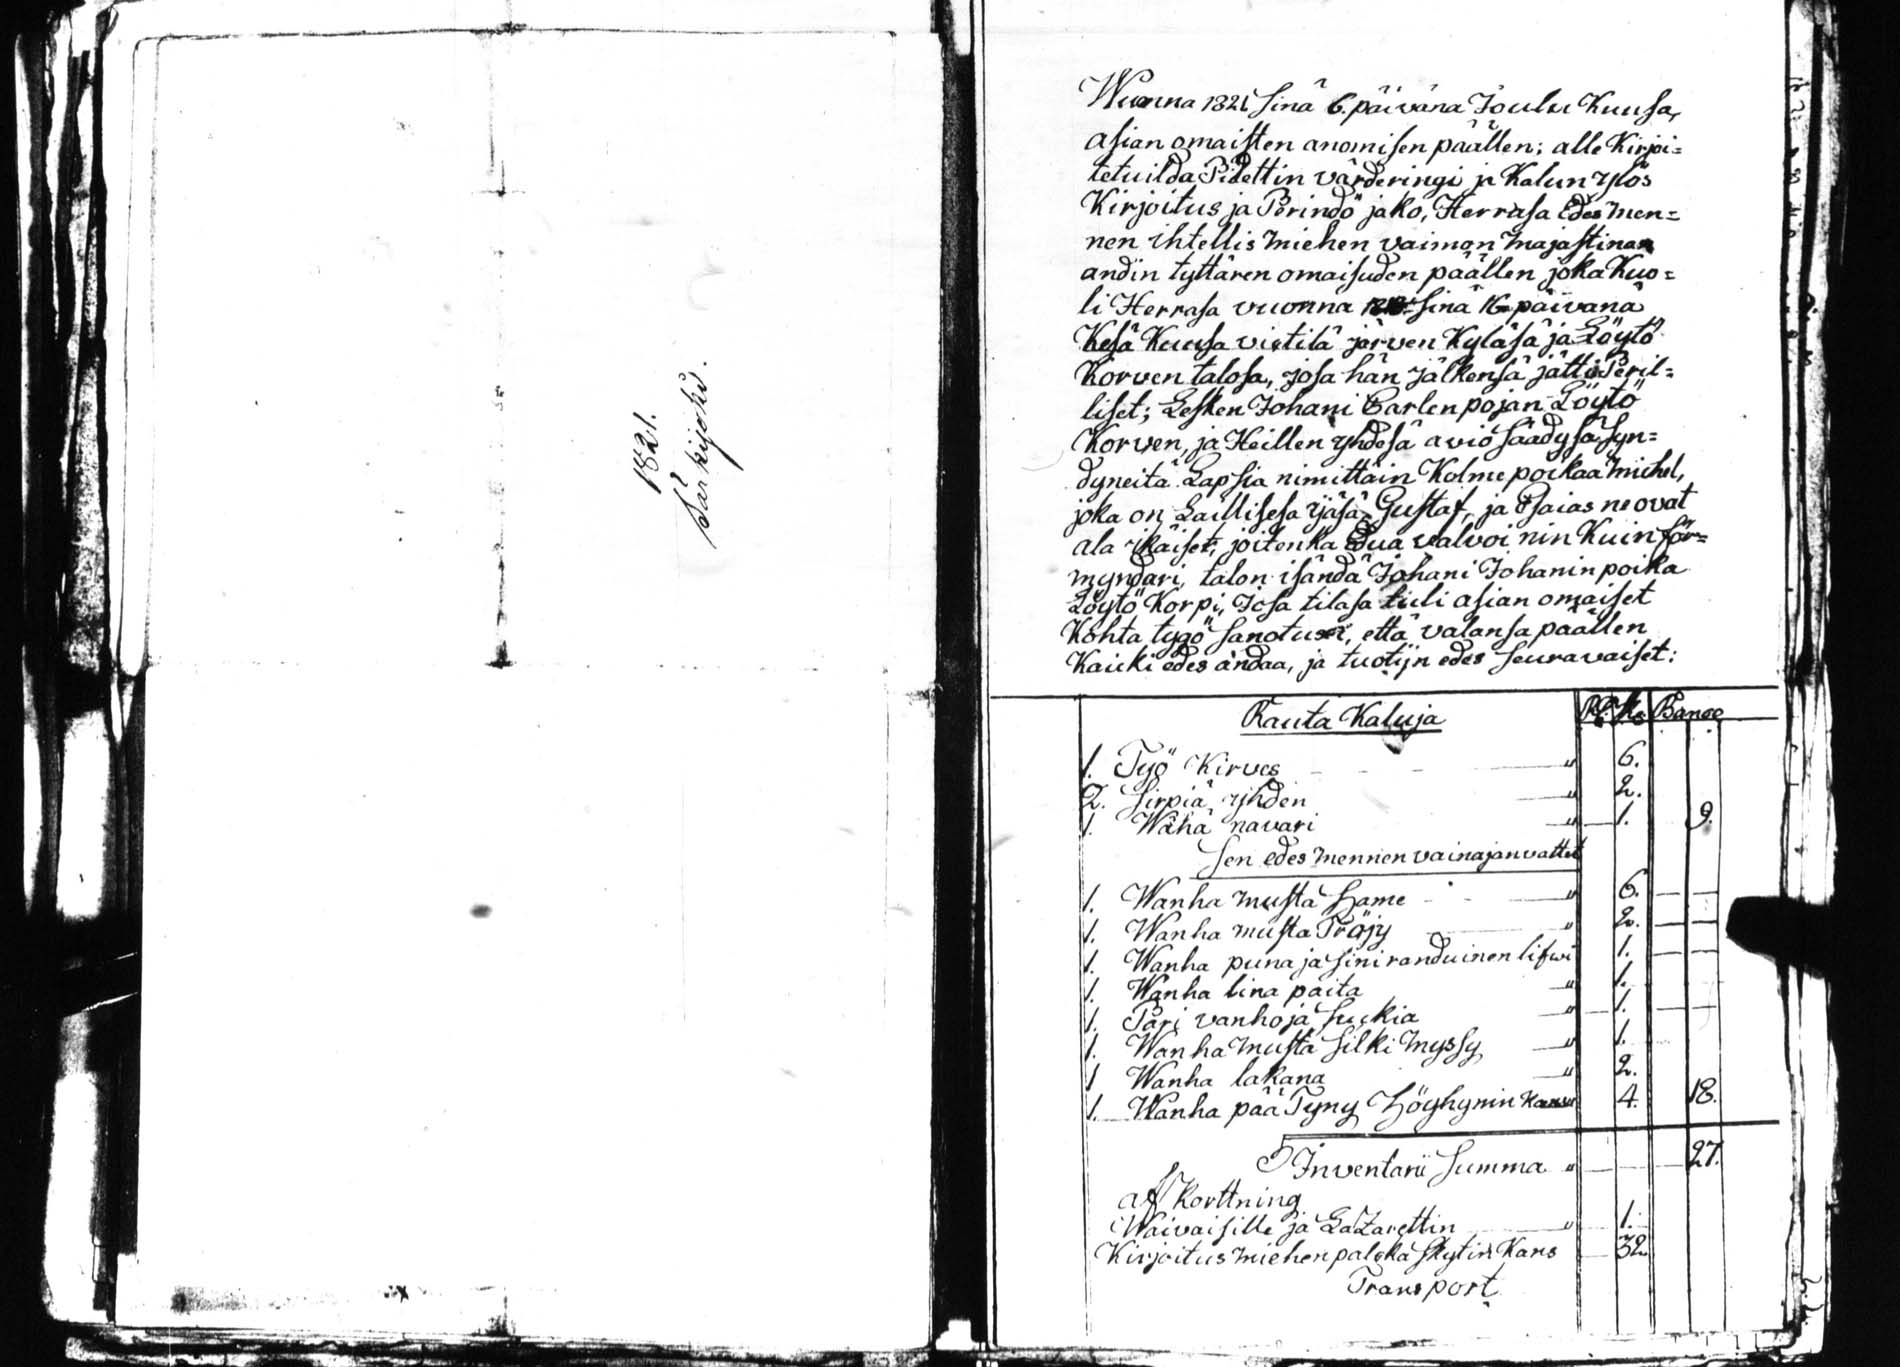 1821.
Särkijoki.
Wuonna 1821 sinä 6. päivänä Joulu Kuusa,
asian omaisten anomisen päällen; alle Kirjoi=
tetuilda Pidettin värderingi ja Kalun ylös
Kirjoitus ja Perindö jako, Herrasa edes men=
nen ihtellis miehen vaimon Majastinan
andin tyttären omaisuden päällen joka Kuo=
li Herrasa vuonna sinä 16 päivänä
Kesä Kuusa vietilä järven Kyläsä ja Löytö
Korven talosa, josa hän jälkensä jätti Peril=
liset; Lesken Johani Carlen pojan Löytö
Korven, ja Heillen yhdesä avio säädysä syn=
dyneitä Lapsia nimittäin Kolme poikaa Michel,
joka on Laillisesa ijäsä, Gustaf, ja Esaias ne ovat
ala ikäiset, joitenka Edua valvoi nin Kuin för=
myndari, talon isändä Johani Johanin poika
Löytö Korpi, Josa tilasa tuli asian omaiset
Kohta tygö sanotuxi, että valansa päällen
Kaicki edes andaa, ja tuotijn edes seuravaiset:
Rauta Kaluja Rb. Ko Banco
1. Työ Kirves " 6.
2. Sirpiä yhden " 2.
1. Wähä navari " 1. 9.
Sen edes mennen vainajan vattet
1. Wanha musta Hame " 6.
1. Wanha musta Tröjy " 2.
1. Wanha puna ja sini randuinen lifwi 1.
1. Wanha lina paita " 1.
1. Pari vanhoja suckia " 1.
1. Wanha Musta silki Myssy " 1.
1 Wanha lakana " 2.
1. Wanha pää Tyny Höyhynin Kans 4. 18.
Inventarii Summa " 27.
af Korttning
Waivaisille ja LaZarettin " 1.
Kirjoitus miehen palcka skytin Kans 32
Transport